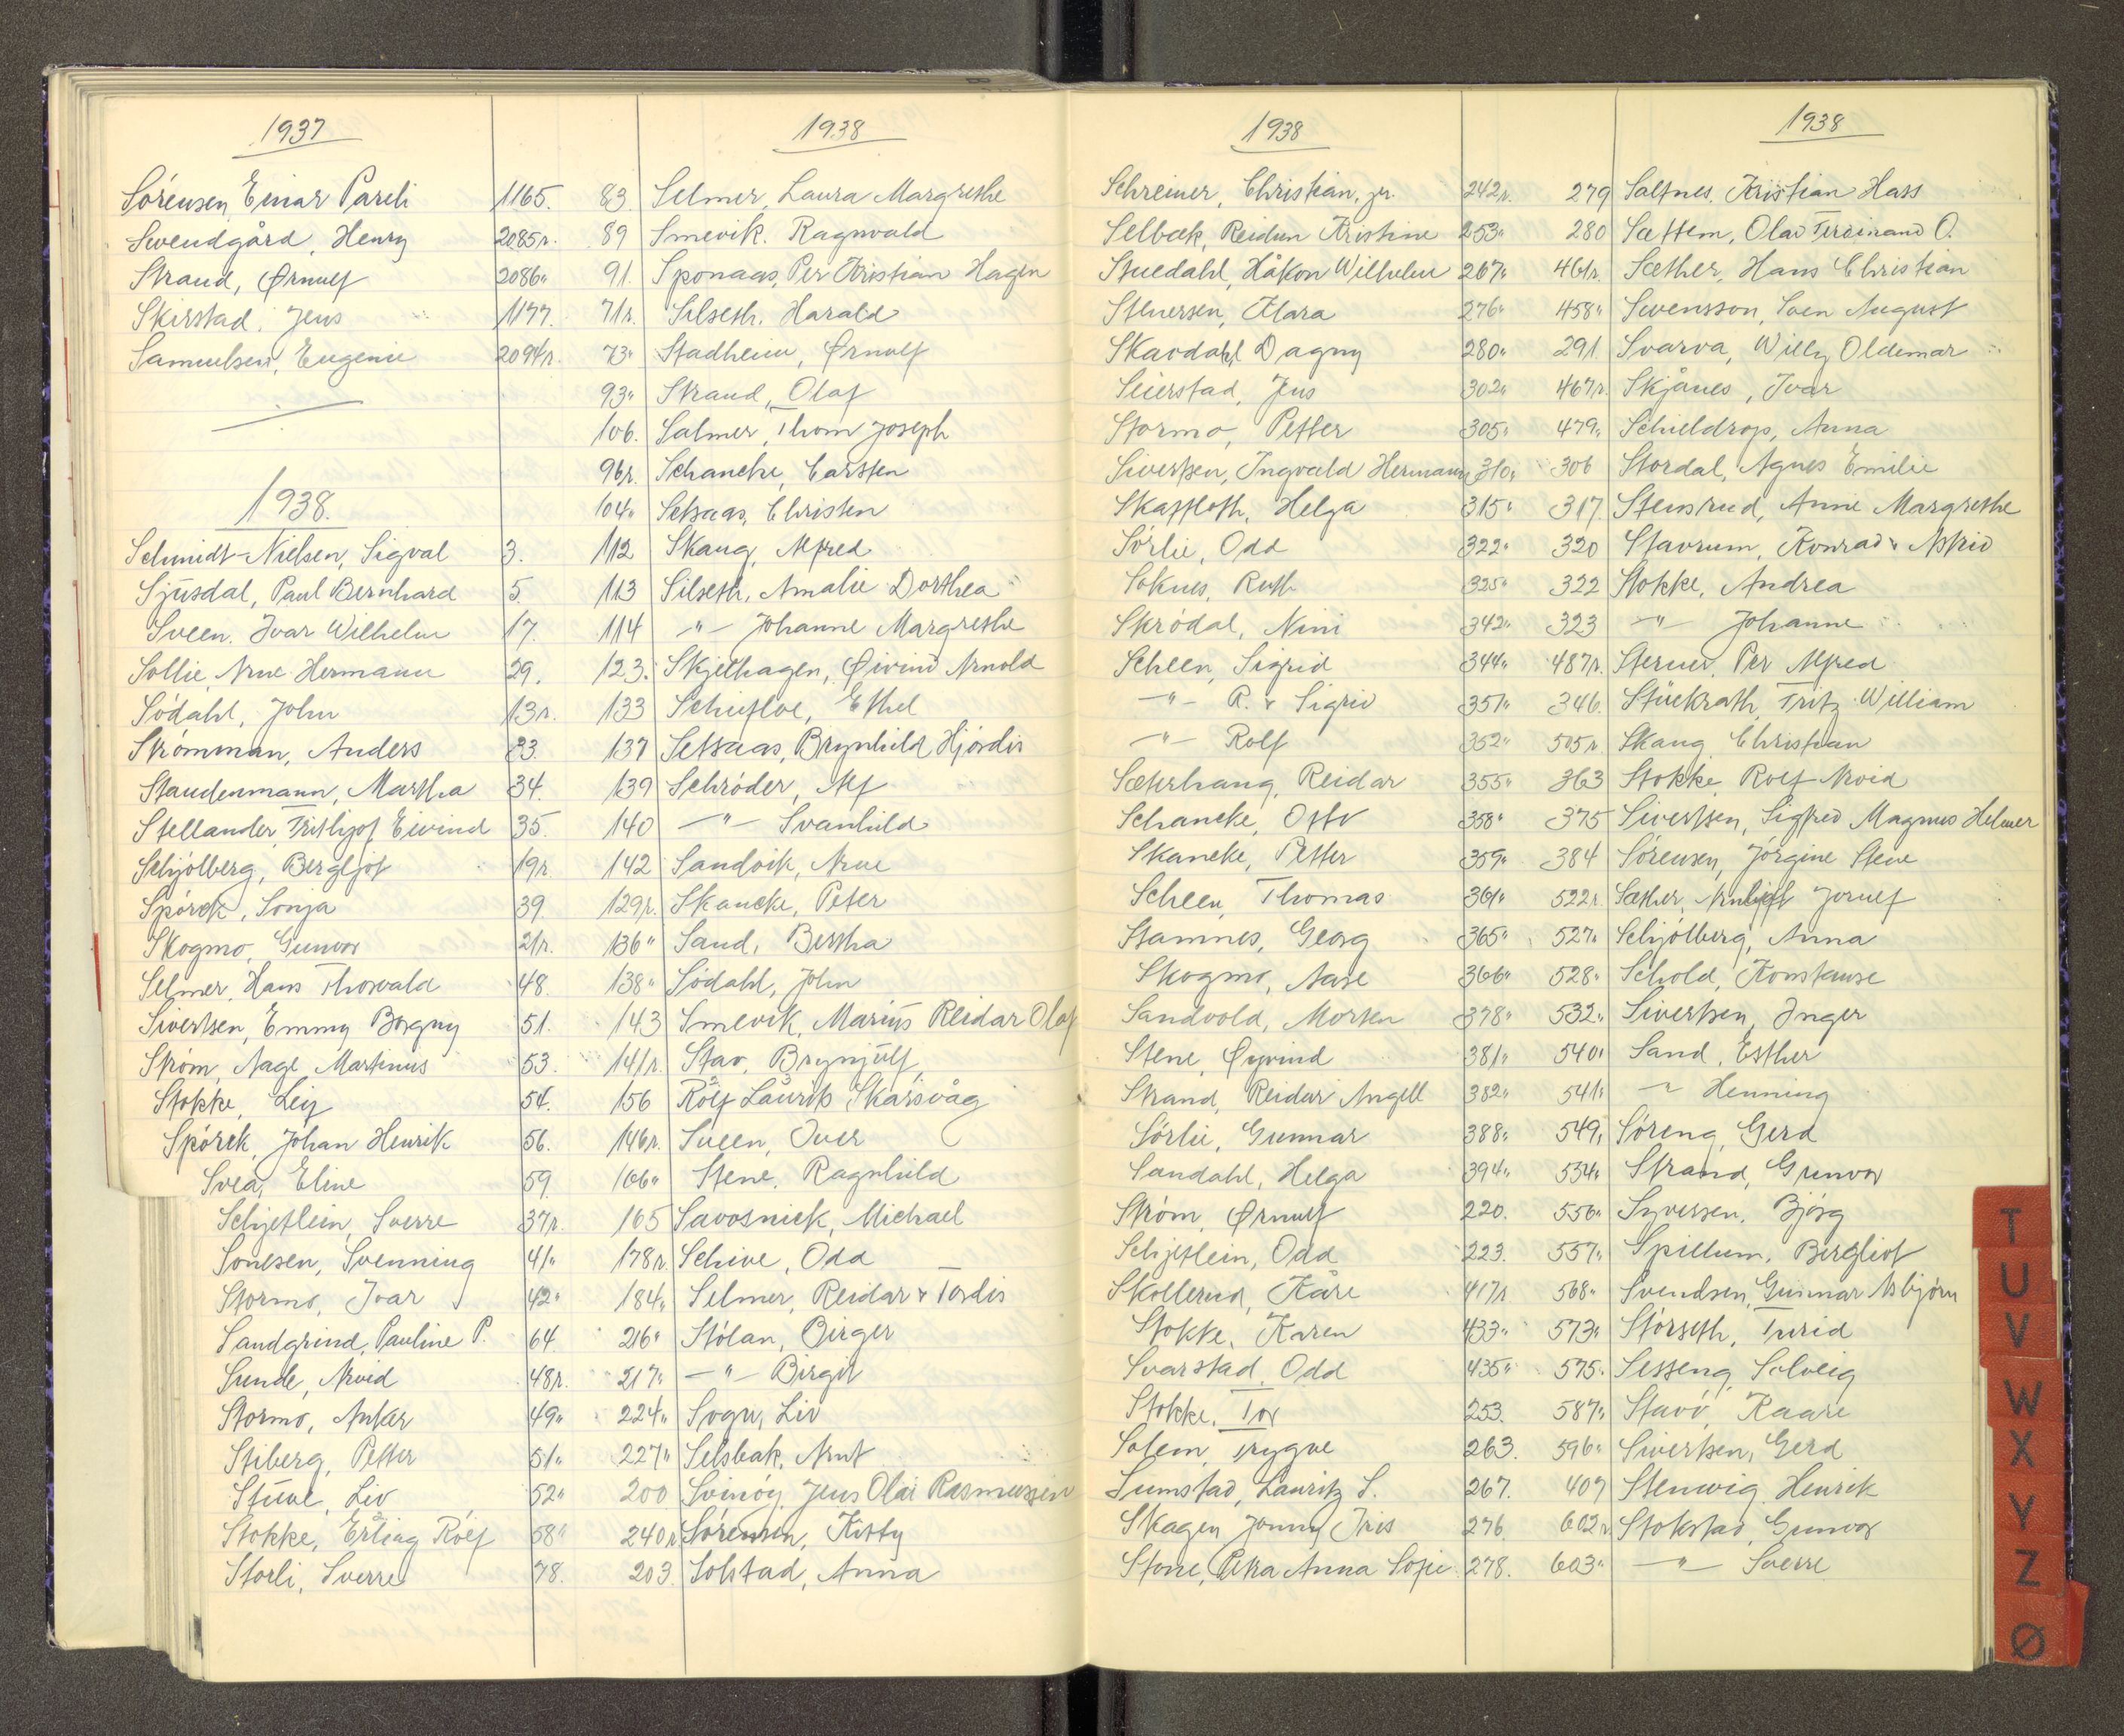 1937
Sörensen, Einar Pareli 1165.
Svendgård, Henry 2085r.
Strand, Ørnulf 2086"
Skirstad, Jens 1177.
Samuelsen, Eugenie 2094r.
1938.
Schmidt-Nielsen, Sigval 3.
Sjüsdal, Paul Bernhard 5
Sveen, Ivar Wilhelm 17.
Sollie, Arne Hermann 29.
Södahl, John 13r.
Strømman, Anders 23.
Staudenmann, Martha 34.
Stellander, Frithjof Eivind 35.
Schjölberg, Bergljot 19r.
Spörck, Sonja 39
Skogmo, Gunvor 21r.
Selmer, Hans Thorvald 48.
Sivertsen, Emmy Borgny 51.
Strøm, Aage Martinus 53.
Stokke, Leif 54.
Spörck, Johan Henrik 56.
Svea, Eline 59
Schjetlein, Sverre 37r.
Sonesen, Svenning 41"
Stormo, Ivar 42"
Sandgrind, Pauline P. 64
Sunde, Arvid 48r.
Stormo, Anker 49"
Stiberg, Petter 51"
Stüve, Liv 52"
Stokke, Erling Rolf 58"
Storli, Sverre 78.
1938
83 Selmer, Laura Margrethe
89 Smevik, Ragnvald
91. Sponaas, Per Kristian Hagen
71r. Silseth, Harald
73" Stadheim, Ørnulf
93" Strand, Olaf
106. Salmer, Thom Joseph
96r. Schancke, Carsten
104" Setsaas, Christen
112 Skaug, Alfred
113 Silseth, Amalie Dorthea
114 -"- Johanne Margrethe
123. Skjelhagen, Øivind Arnold
133 Schiefloe, Ethel
137 Setsaas, Brynhild Hjördis
139 Schröder, Alf
140 -"- Svanhild
142 Sandvik, Arne
129r. Skancke, Peter
136" Sand, Bertha
138" Södahl, John
143 Smevik, Marius Reidar Olaf
141r. Stav, Brynjulf
156 Rolf Laurits Skarsvåg
146r. Sveen, Iver
166" Stene, Ragnhild
165 Savosnick, Michael
178r. Schive, Odd
184" Selmer, Reidar & Tordis
216" Stölan, Birger
217" -"- Birgit
224" Sogn, Liv
227" Selsbak, Arnt
200 Svinöy, Jens Olai Rasmussen
240r Sörensen, Kitty
203. Solstad, Anna
1938
Schreiner, Christian, jr. 242r.
Selbæk, Reidun Kristine 253"
Stuedahl, Håkon Wilhelm 267"
Stenersen, Klara 276"
Skavdahl, Dagny 280"
Seierstad, Jens 302"
Stormo, Petter 305"
Sivertsen, Ingvald Hermann 310"
Skaftloth, Helga 315"
Sörlie, Odd 322"
Soknes, Ruth 325"
Skrödal, Nini 342"
Scheen, Sigrid 344"
-"- R. & Sigrid 351"
-"- Rolf 352"
Sæterhaug, Reidar 355"
Schancke, Otto 358"
Skancke, Petter 359"
Scheen, Thomas 361"
Stamnes, Georg 365"
Skogmo, Aase 366"
Sandvold, Morten 378"
Stene, Øyvind 381"
Strand, Reidar Angell 382"
Sörlie, Gunnar 388"
Sandahl, Helga 394"
Strøm, Ørnulf 220.
Schjetlein, Odd 223.
Skollerud, Kåre 417r
Stokke, Karen 433"
Svarstad, Odd 435"
Stokke, Tor 253.
Solem, Trygve 263.
Sumstad, Lauritz S. 267.
Skagen, Jonny Iris 276
Stone, Petra Anna Sofie 278.
1938
279 Saltnes, Kristian Hass
280 Sættem, Olav Ferdinand O.
461r. Sæther, Hans Christian
458" Svensson, Sven August
291 Svarva, Willy Oldemar
467r. Skjånes, Ivar
479" Schieldrop, Anna
306 Stordal, Agnes Emilie
317 Stensrud, Anne Margrethe
320 Stavrum, Konrad & Astrid
322 Stokke, Andrea
323 -"- Johanne
487r. Sterner, Per Alfred
346. Stückrath, Fritz William
505r Skaug, Christian
363 Stokke, Rolf Arvid
375 Sivertsen, Sigfred Magnus Helmer
384 Sörensen, Jörgine Stene
522r. Sæther, Jornulf
527" Schjölberg, Anna
528" Schold, Konstanse
532" Sivertsen, Inger
540" Sand, Esther
541" -"- Henning
549" Söreng, Gerd
554" Strand, Gunvor
556" Syversen, Bjørg
557" Spillum, Bergliot
568" Svendsen, Gunnar Asbjørn
573" Störseth, Turid
575" Sesseng, Solveig
587" Stavö, Kaare
596" Sivertsen, Gerd
407 Stenwig, Henrik
602r Stokstad, Gunvor
603" -"- Sverre
T
U
V
W
X
Y
Z
Ø